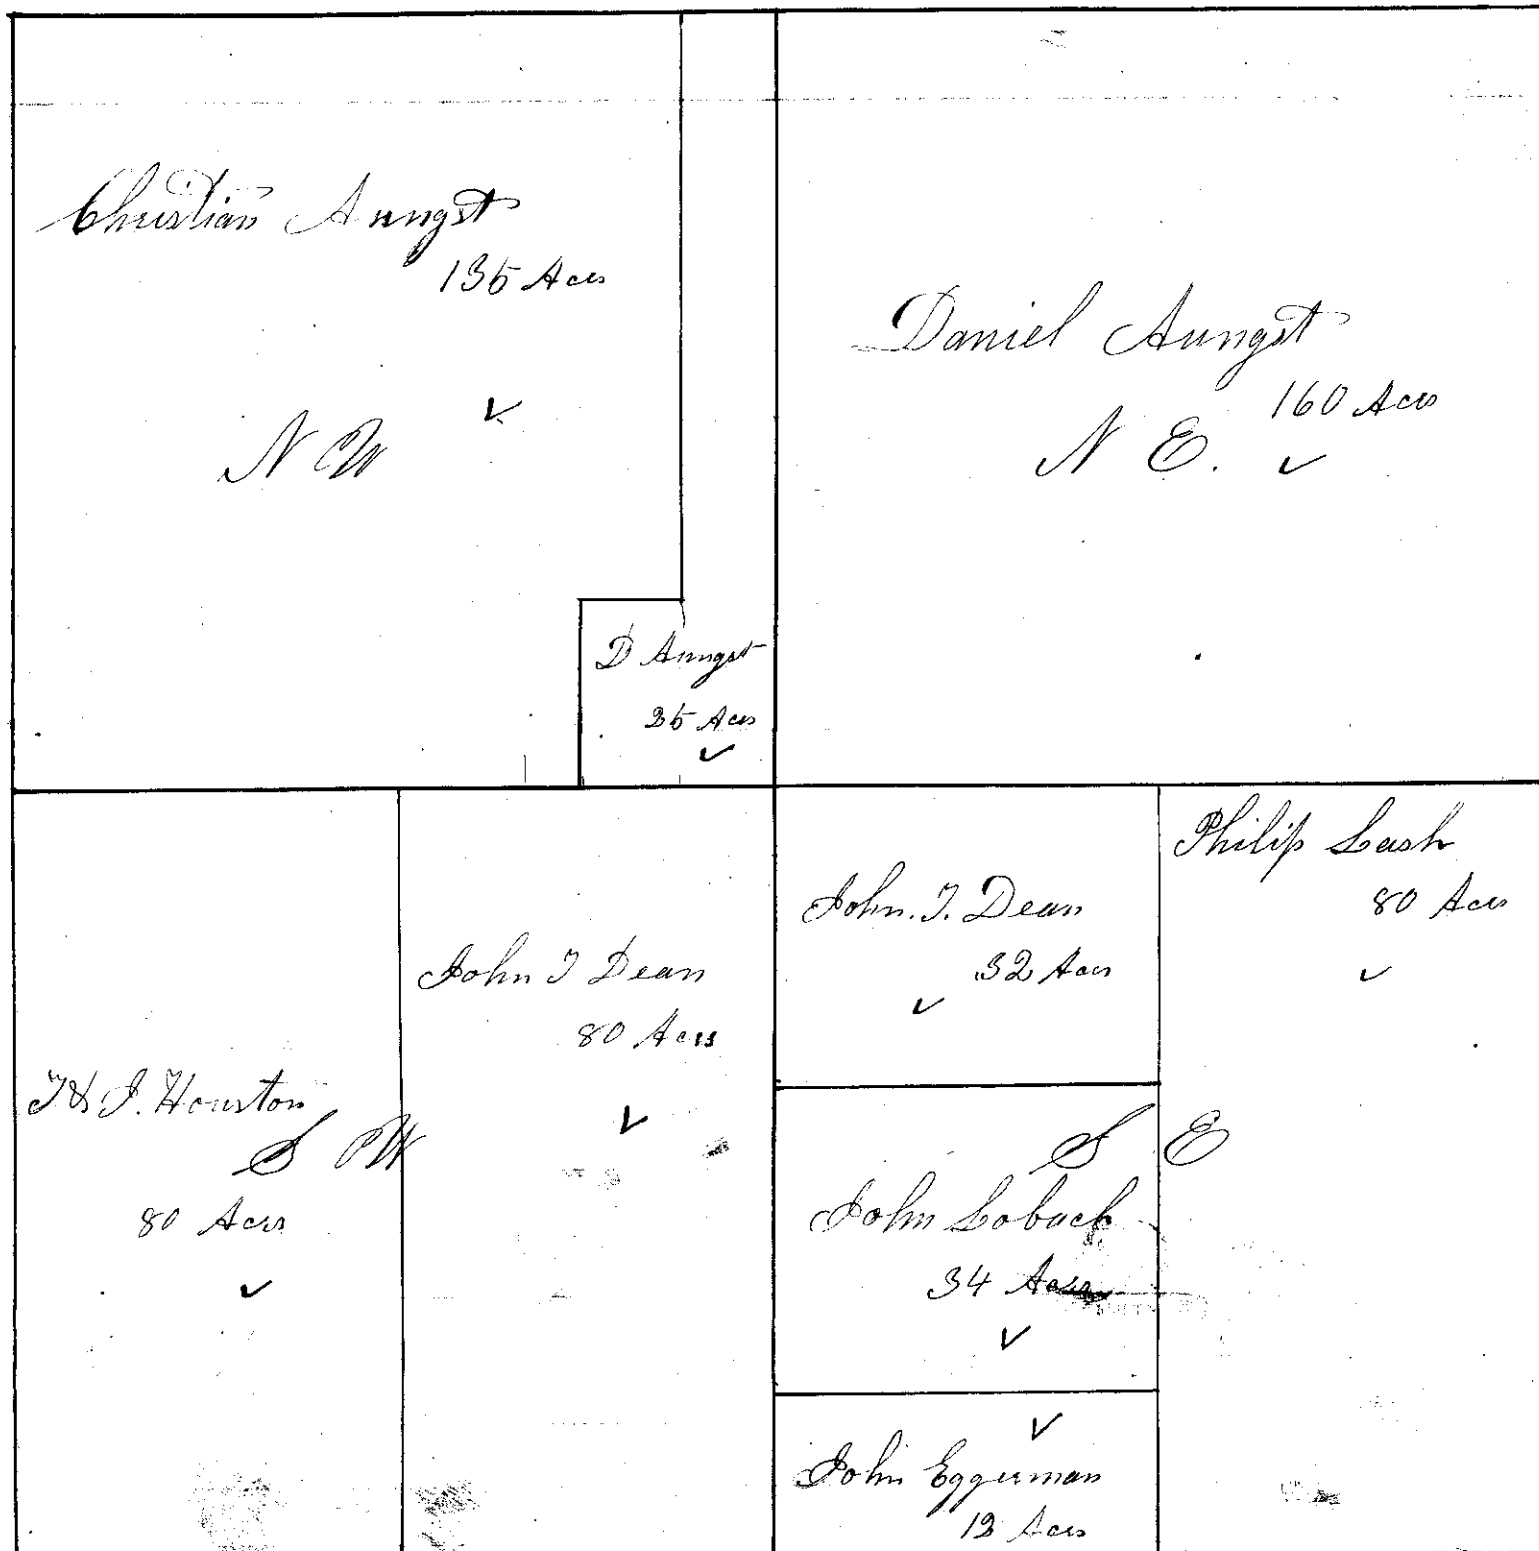 Christian Aungst
135 Acrs
N W
D Aungst
25 Acrs
Daniel Aungst
160 Acrs
N E.
J. Houston
S W
80 Acrs
John T Dean
80 Acrs
John. T. Dean
32 Acrs
S E
John Loback
34 Acrs
John Eggerman
12 Acrs
Philip Lash
80 Acrs